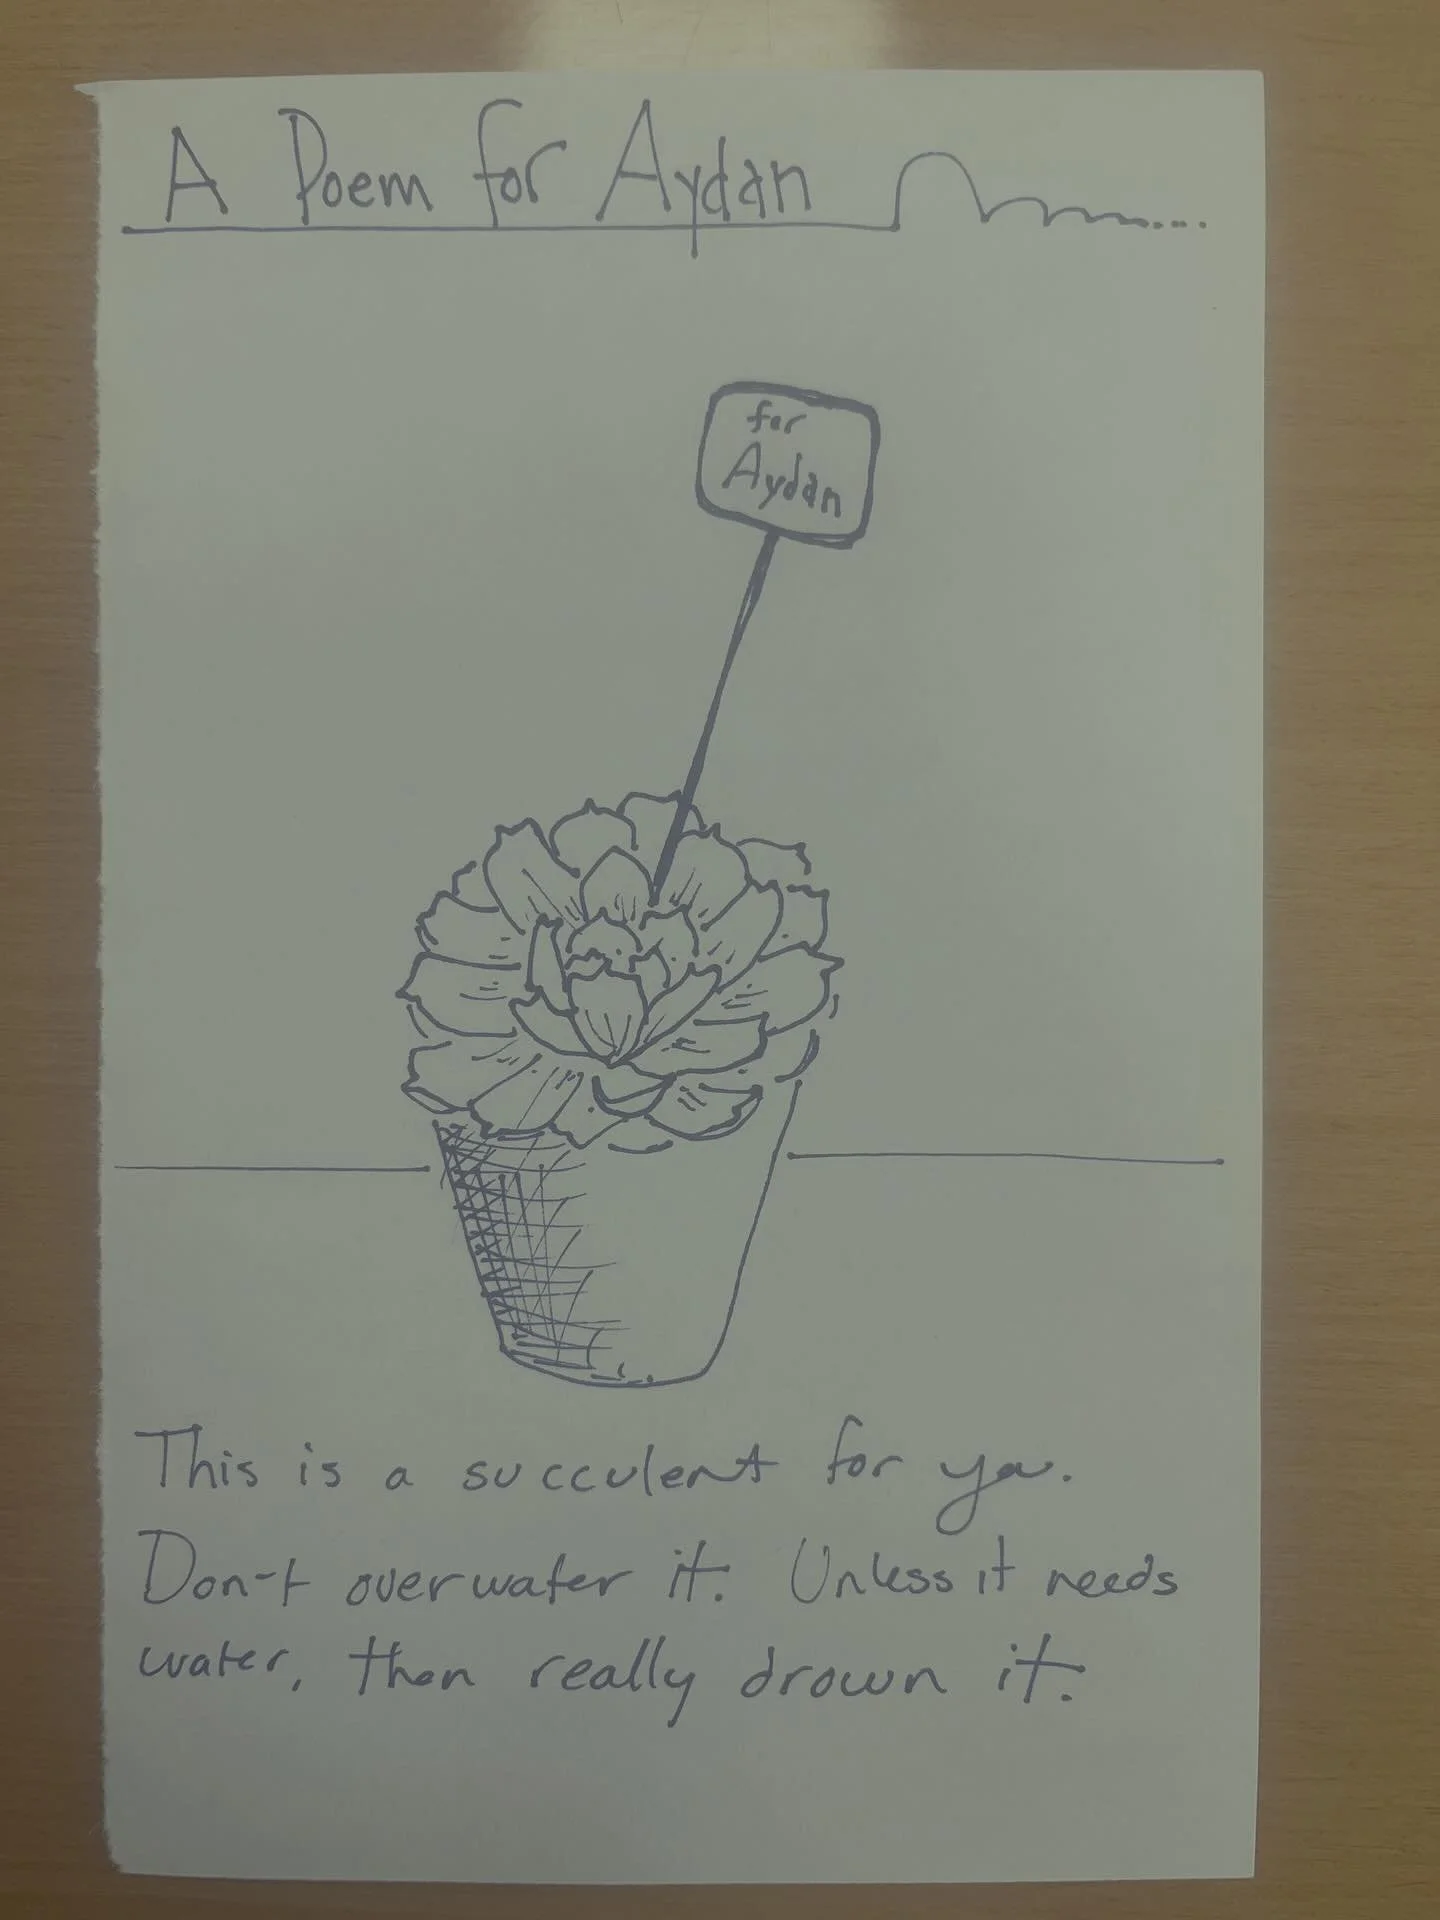 A Poem for Aydan
for
Aydan
This is a succulent for you.
Don't overwater it. Unless it needs
water, then really drown it.